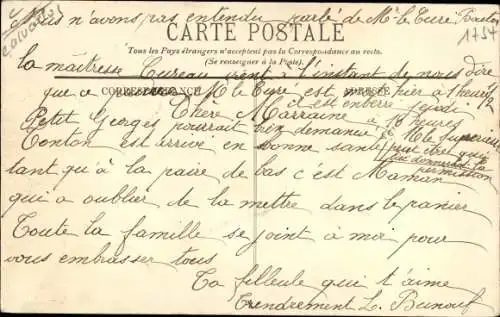 Nous n'avons pas entendu parlé de Mr le Curé
calvados
1754
CARTE POSTALE
Tous les Pays étrangers n'acceptent pas la Correspondance au recto.
(Se renseigner à la Poste).
la maîtresse Cureau vient à l'instant de nous dire
CORRESPONDANCE
ADRESSE
que Mr le Curé est hier à 1 heure 1/2
il est enterré jeudi
Chère Marraine à 10 heures
Petit Georges pourrait en demander à Mr le Superieur
peut être qu'il
lui donnerait la
permission
Tonton est arrivé en bonne santé
tant qu'à la paire de bas c'est Maman
qui a oublier de la mettre dans le panier
Toute la famille se joint à moi pour
vous embrasser tous
Ta filleule qui t'aime
Tendrement L. Bunouf